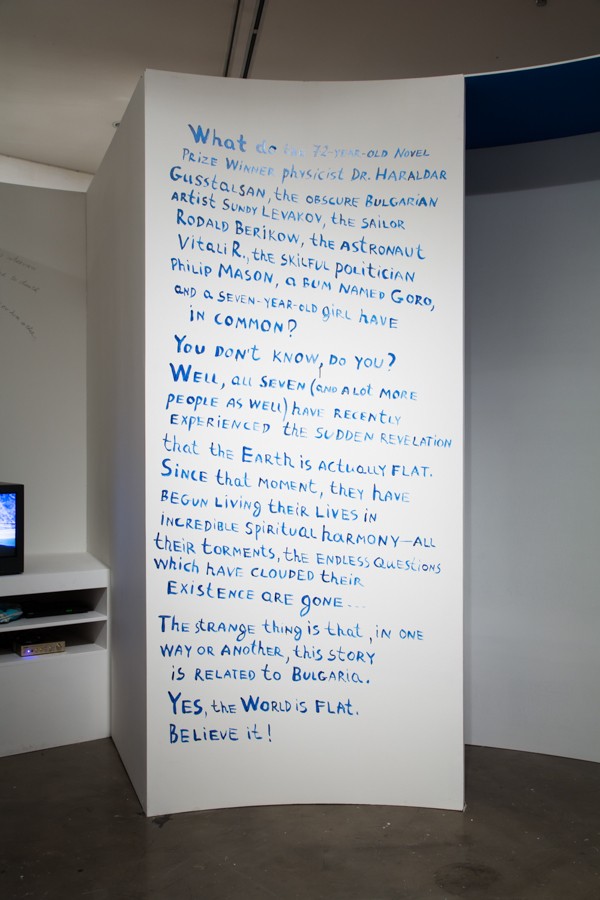 What do the 72-YEAR-OLD NOVEL
PRIZE WINNER physicist DR. HARALDAR
GUSSTALSAN, the OBSCURE BULGARIAN
ARTIST SUNDY LEVAKOV, the SAILOR
RODALD BERIKOW, the ASTRONAUT
VITALI R., the SKILFUL POLITICIAN
PHILIP MASON, a BUM NAMED GORO,
AND a SEVEN-YEAR-OLD girl HAVE
IN COMMON?
YOU DON'T KNOW, DO YOU?
WELL, all SEVEN (AND A lot MORE
PEOPLE AS WELL) HAVE RECENTLY
EXPERIENCED the SUDDEN REVELATION
that the EARth is ACTUALLY FLAT.
SINCE that MOMENT, they HAVE
BEGUN LIVING their LIVES IN
INCREDIBLE SPIRITUAL HARMONY—ALL
their TORMENTS, the ENDLESS QUESTIONS
which HAVE CLOUDED their
EXISTENCE ARE gONE...
The strange thing is that, IN ONE
WAY OR ANOTHER, this STORY
is RELATED to BULGARIA.
YES, the WORLD is FLAT.
BELIEVE it!